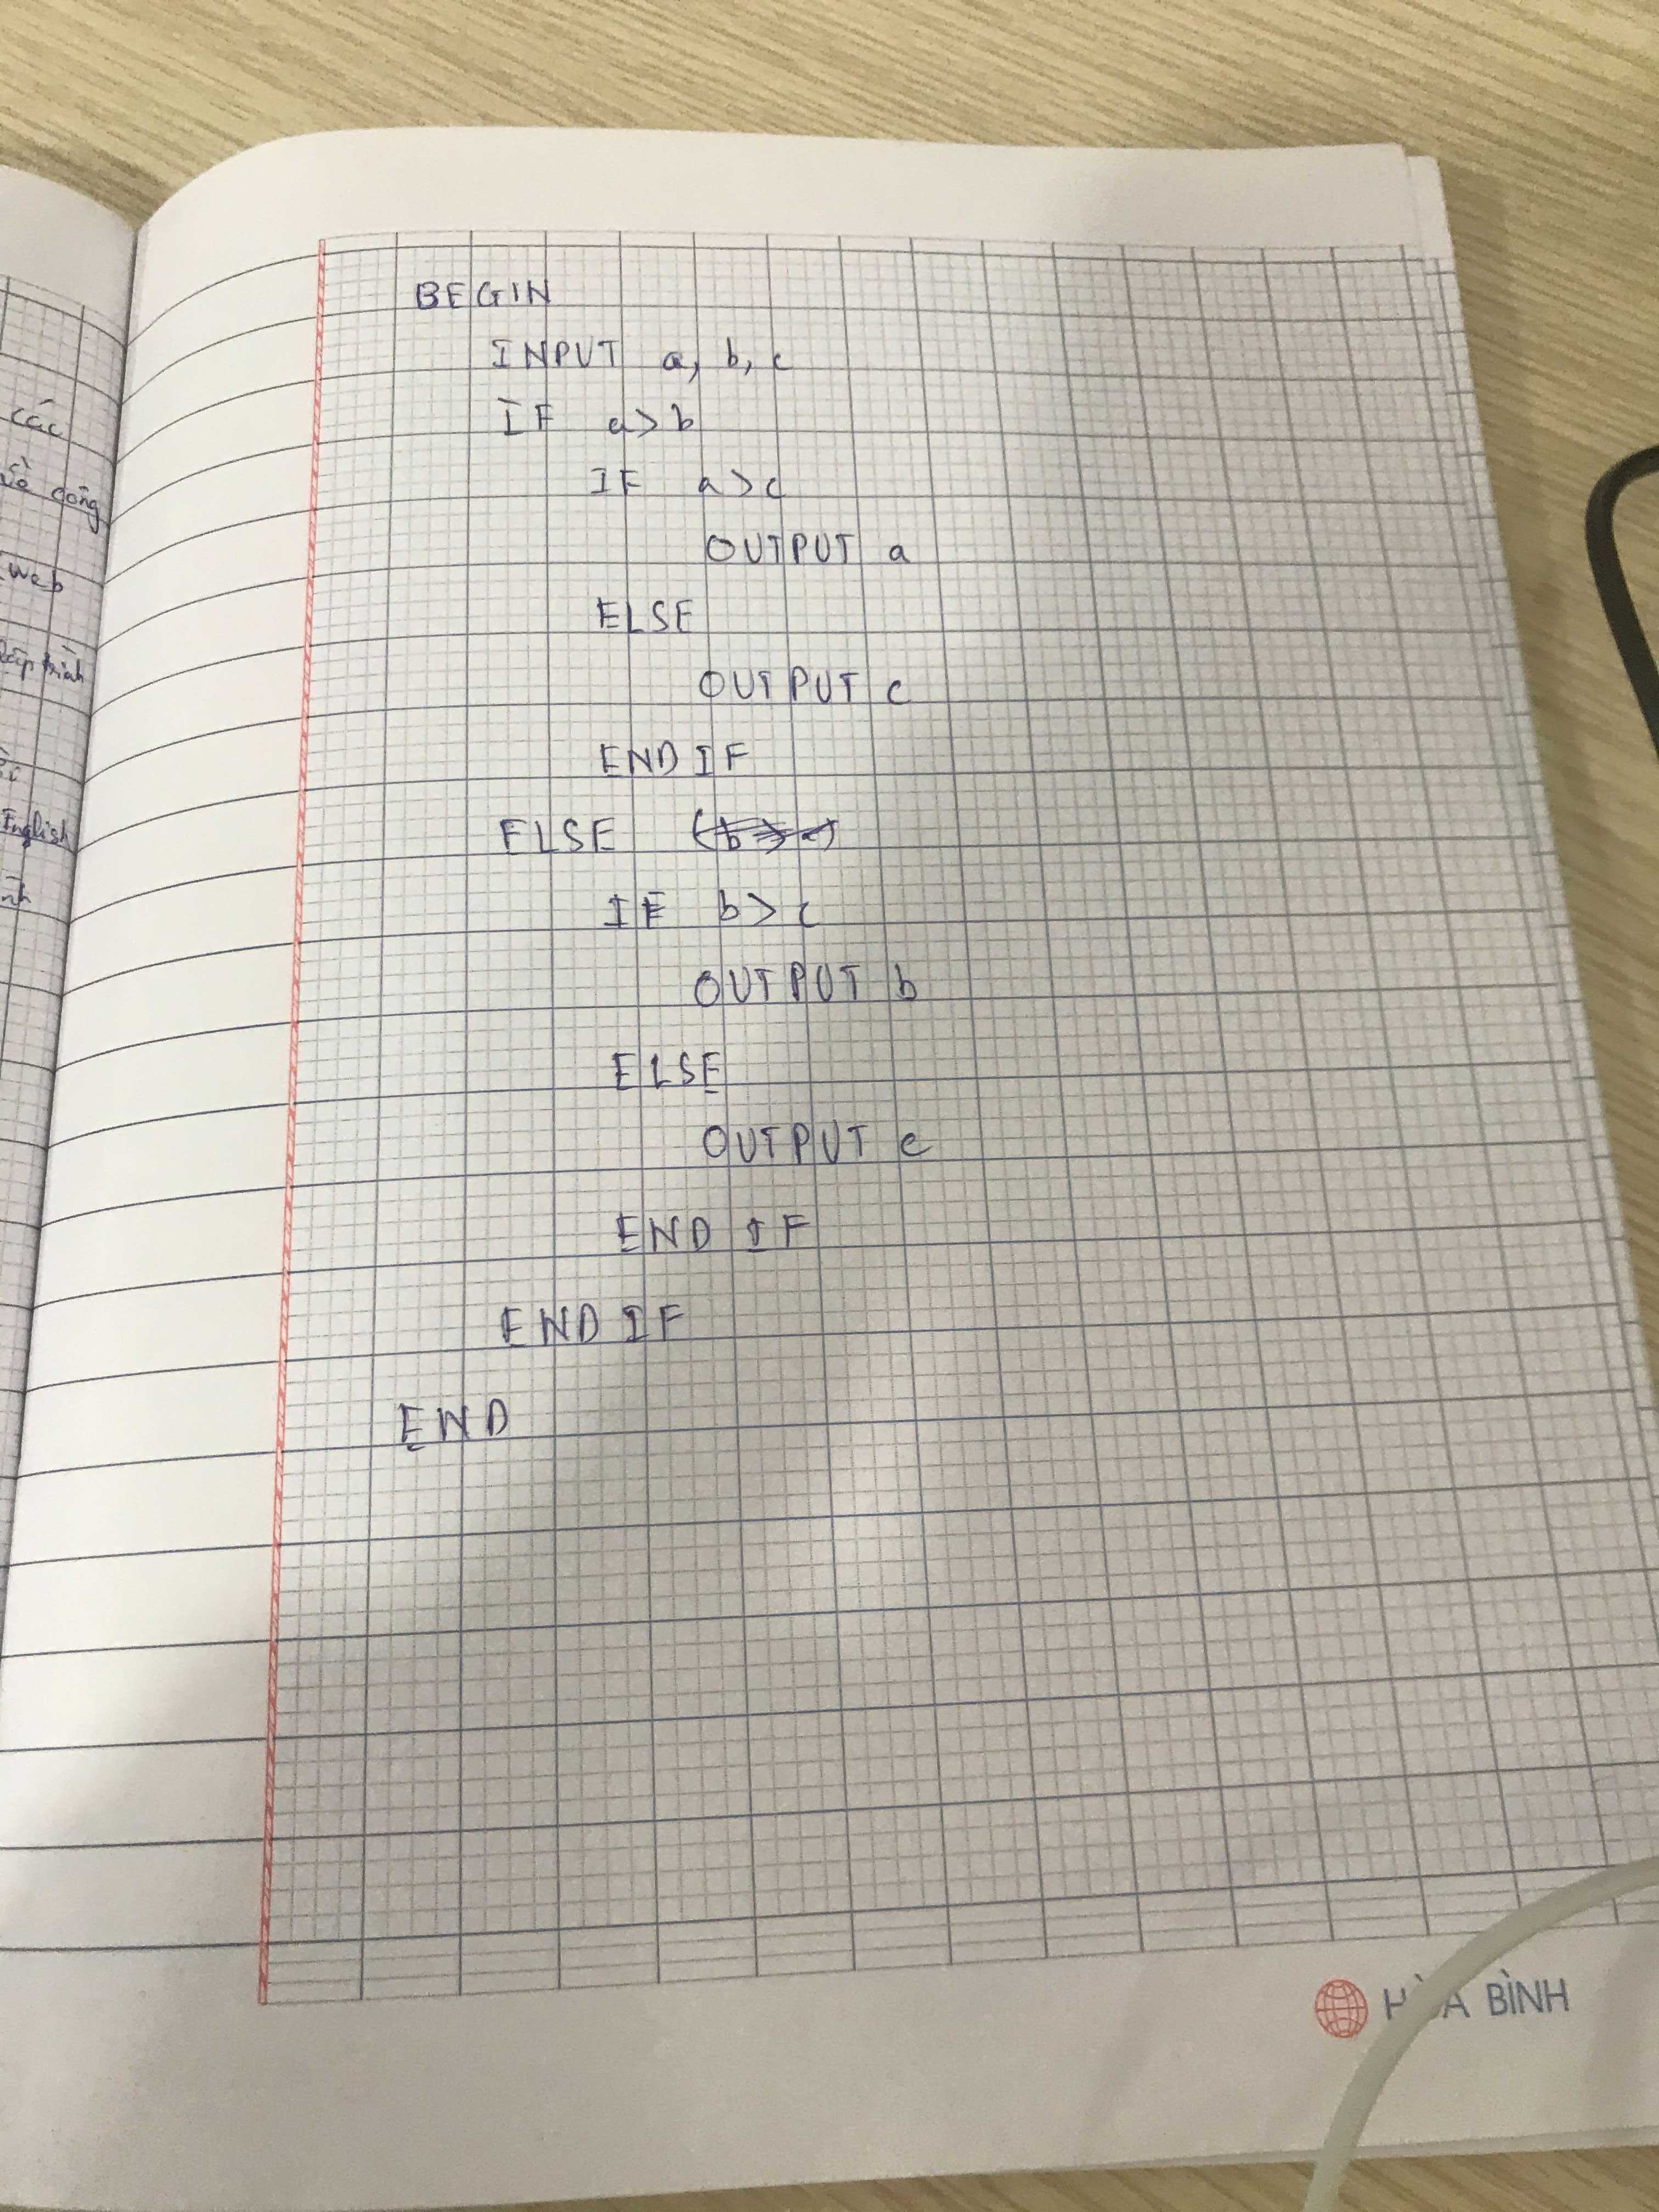 các
về công
Web
lập trình
English
BEGIN
INPUT a, b, c
IF a > b
IF a > c
OUTPUT a
ELSE
OUTPUT c
END IF
ELSE
IF b > c
OUTPUT b
ELSE
OUTPUT c
END IF
END IF
END
BÌNH